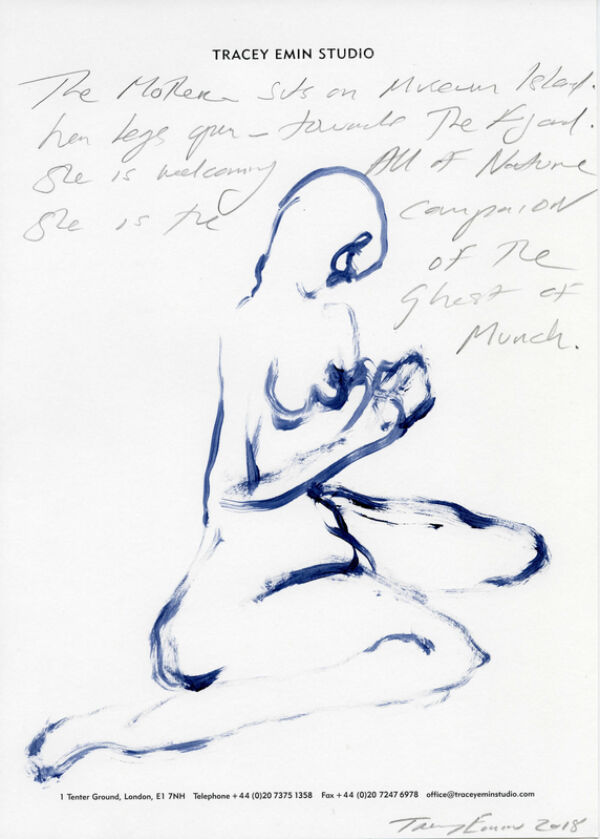 TRACEY EMIN STUDIO
The Mother sits on Museum Island.
her legs open – towards The Fjord.
She is welcoming All of Nature
She is the Campaion
of The
Ghost of
Munch.
1 Tenter Ground, London, E1 7NH Telephone +44 (0)20 7375 1358 Fax +44 (0)20 7247 6978 office@traceyeminstudio.com
Tracey Emin 2018